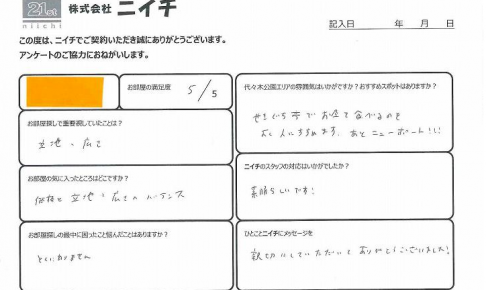 21st
niichi
株式会社 ニイチ
記入日 年 月 日
この度は、ニイチでご契約いただき誠にありがとうございます。
アンケートのご協力におねがいします。
お部屋の満足度
5/5
お部屋探しで重要視していたことは?
立地・広さ
お部屋の気に入ったところはどこですか?
価格と立地・広さのバランス
お部屋探しの最中に困ったこと悩んだことはありますか?
とくにありません
代々木公園エリアの雰囲気はいかがですか?おすすめスポットはありますか?
で
食べるのを
人にすすめます。あとニューポート!!
ニイチのスタッフの対応はいかがでしたか?
素晴らしいです!
ひとことニイチにメッセージを
親切にしていただいてありがとうございました!